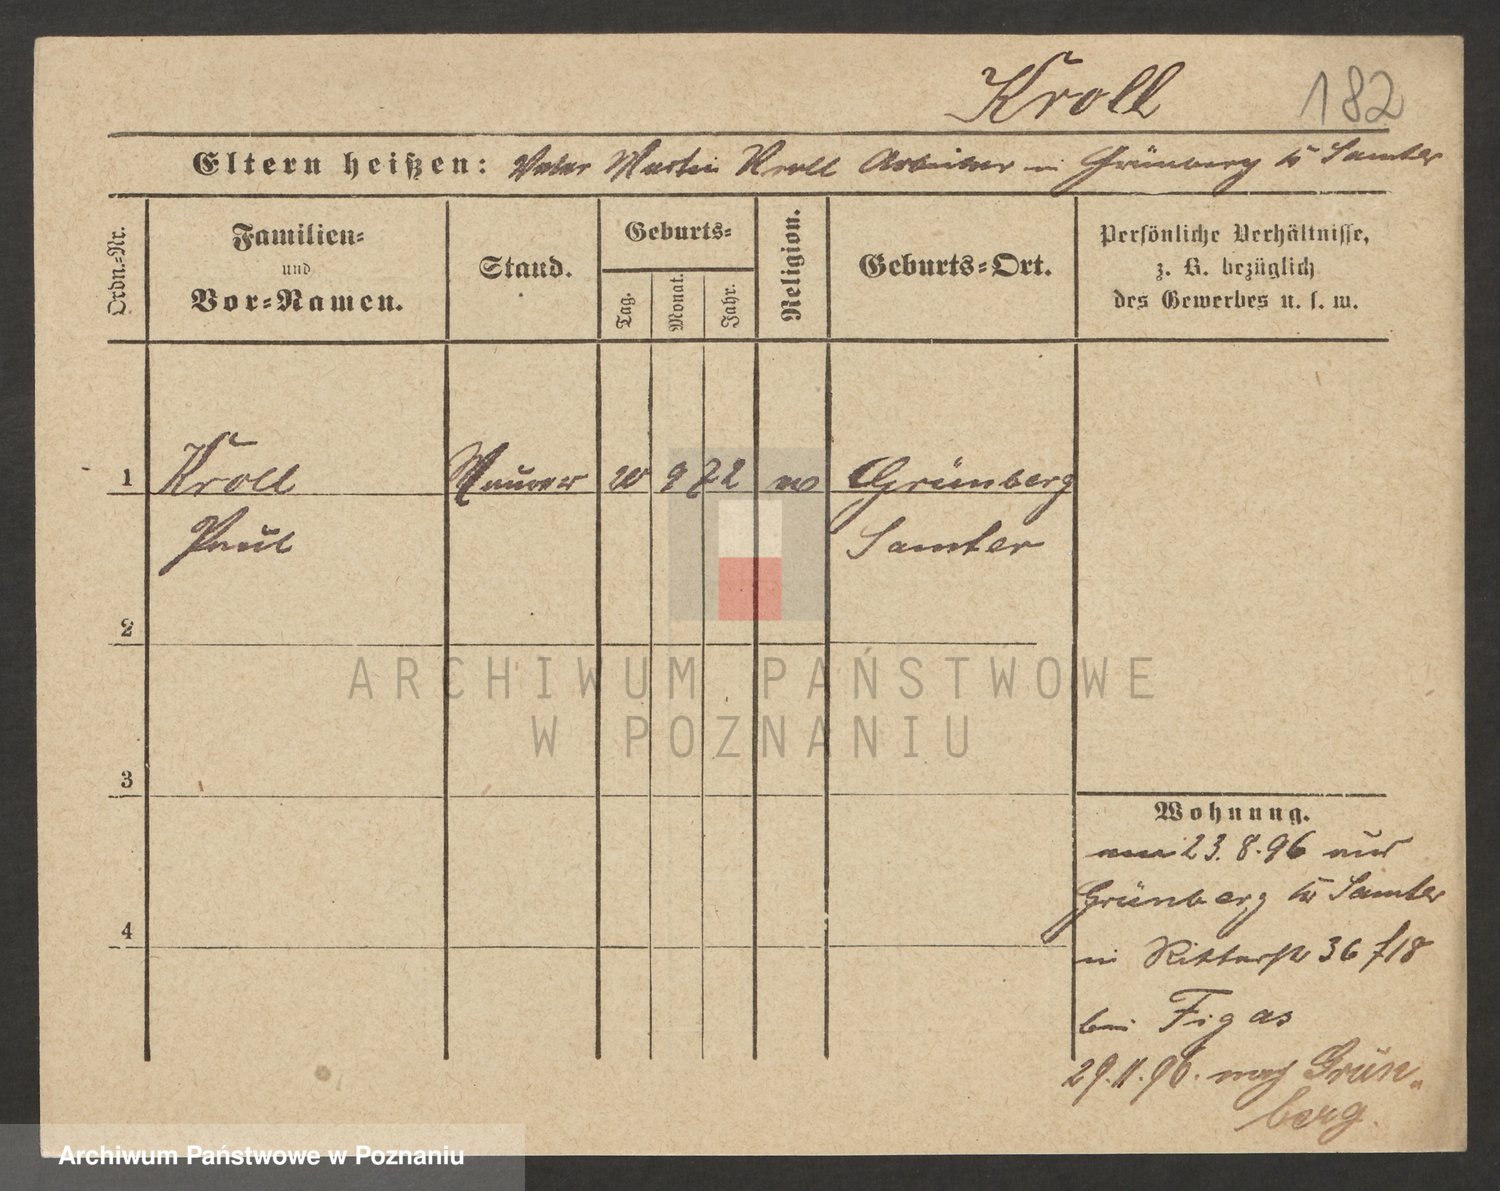 Kroll 182
Eltern heißen: Vater Martin Kroll Arbeiter in Grünberg Kr Samter
Ordn.-Nr.
Familien-
und
Vor-Namen.
Stand.
Geburts-
Tag.
Monat.
Jahr.
Religion.
Geburts-Ort.
Persönliche Verhältnisse,
z. B. bezüglich
des Gewerbes u. s. w.
1 Kroll Maurer 9 72 Grünberg
Paul Samter
2
ARCHIWUM PAŃSTWOWE
W POZNANIU
3
4
Wohnung.
23.8.96 aus
Grünberg Kr Samter
in Ritterstr 36 f18
bei Figas
29.11.96. nach Grün-
berg.
Archiwum Państwowe w Poznaniu